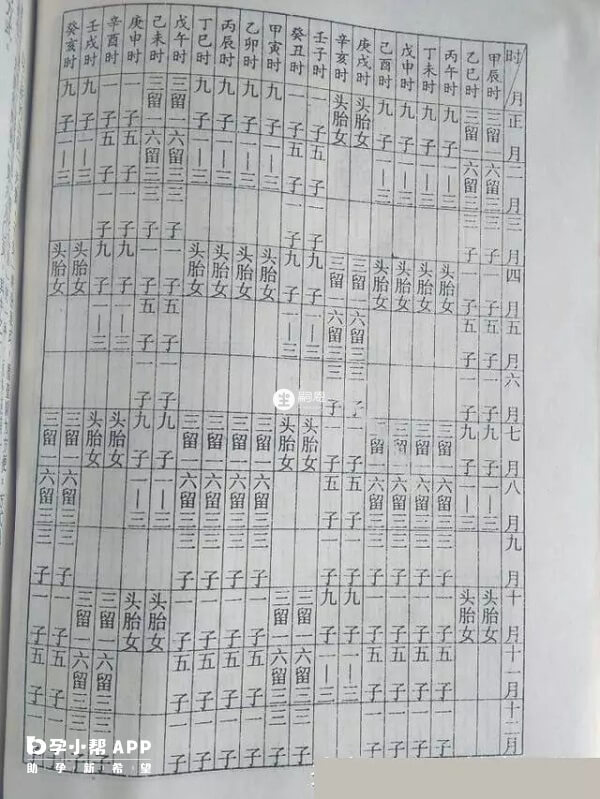 时/月 正月 二月 三月 四月 五月 六月 七月 八月 九月 十月 十一月 十二月
甲辰时 三留一 六留三 三子 一子 五子 一子 九子 一—三 头胎女
乙巳时 三留一 六留三 三子 一子 五子 一子 九子 一—三 头胎女
丙午时 九子 一—三 头胎女 三留一 六留三 三子 一子 五子 一子
丁未时 九子 一—三 头胎女 三留一 六留三 三子 一子 五子 一子
戊申时 九子 一—三 头胎女 三留一 六留三 三子 一子 五子 一子
己酉时 九子 一—三 头胎女 留一 六留三 三子 一子 五子 一子
庚戌时 头胎女 三留一 六留三 三子 一子 五子 一子 九子 一—三
辛亥时 头胎女 三留一 六留三 三子 一子 五子 一子 九子 一—三
壬子时 一子 五子 一子 九子 一—三 头胎女 三留一 六留三 三子
癸丑时 一子 五子 一子 九子 一—三 头胎女 三留一 六留三 三子
甲寅时 九子 一—三 头胎女 三留一 六留三 三子 一子 五子 一子
乙卯时 九子 一—三 头胎女 三留一 六留三 三子 一子 五子 一子
丙辰时 九子 一—三 头胎女 三留一 六留三 三子 一子 五子 一子
丁巳时 九子 一—三 头胎女 三留一 六留三 三子 一子 五子 一子
戊午时 三留一 六留三 三子 一子 五子 一子 九子 一—三 头胎女
己未时 三留一 六留三 三子 一子 五子 一子 九子 一—三 头胎女
庚申时 一子 五子 一子 九子 一—三 头胎女 三留一 六留三 三子
辛酉时 一子 五子 一子 九子 一—三 头胎女 三留一 六留三 三子
壬戌时 九子 一—三 头胎女 三留一 六留三 三子 一子 五子 一子
癸亥时 九子 一—三 头胎女 三留一 六留三 三子 一子 五子 一
嗣恩
孕小帮APP
助孕新希望